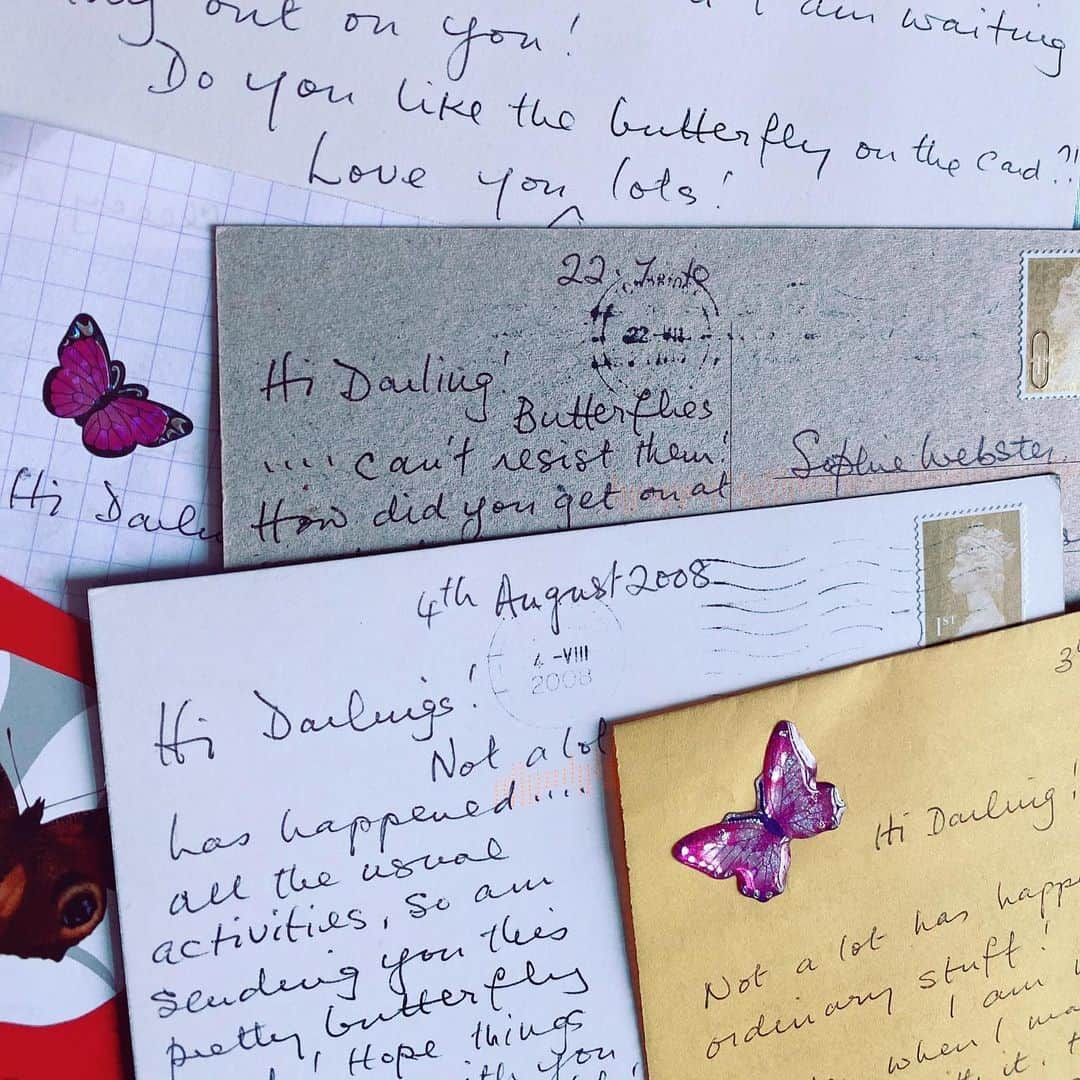 out on you!
I am waiting
Do you like the butterfly on the card?!
Love you lots!
22
22 VII
Hi Darling!
Butterflies
.... can't resist them!
How did you get on at
Sophie Webster
Hi
4th August 2008
4 -VIII
2008
1ST
Hi Darlings!
Not a lot
has happened....
all the usual
activities, so am
sending you this
pretty butterfly
! Hope things
with you
Hi Darling!
Not a lot has
ordinary stuff!
I am
when I
it.